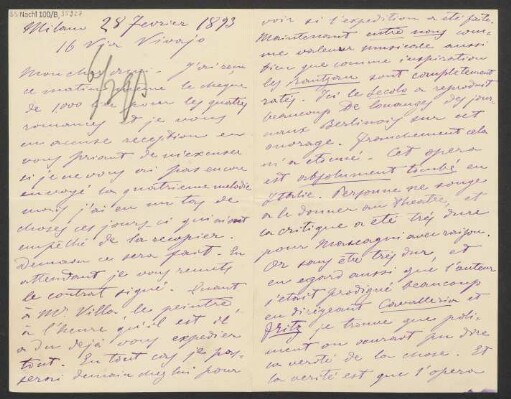 55 Nachl 100/B,
Milano 28 Fevrier 1893
16 Via Vivajo
Mon cher J'ai reçu
ce matin le chèque
de 1000 pour les quatres
romances et je vous
en accuse reception en
vous priant de m'excuser
si je ne vous ai pas encore
envoyé la quatrieme melodie
mais j'ai eu un tas de
choses ces jours ci qui m'ont
empêché de la recopier.
Demain ce sera fait. En
attendant je vous remets
le contrat signé. Quant
à Mr Villa, le peintre,
à l'heure qu'il est il
a du déjà vous expedier
tout. En tout cas je pas-
serai demain chez lui pour
voir si l'expedition a été faite.
Maintenant entre nous com-
me valeur musicale aussi
bien que comme inspiration
les Rantzau sont completement
ratés. Ici le Secolo a reproduit
beaucoup de louanges des jour-
naux Berlinois sur cet
ouvrage. Franchement cela
m'a étonné. Cet opera
est absolument tombé en
Italie. Personne ne songe
a le donner au theatre, et
la critique a été très dure
pour Mascagni avec raison.
Or sans être très dur, et
en egard aussi que l'auteur
s'etait prodigué beaucoup
en dirigeant Cavalleria et
Fritz je trouve que poli-
ment on aurait pu dire
la verité de la chose. Et
la verité est que l'opera